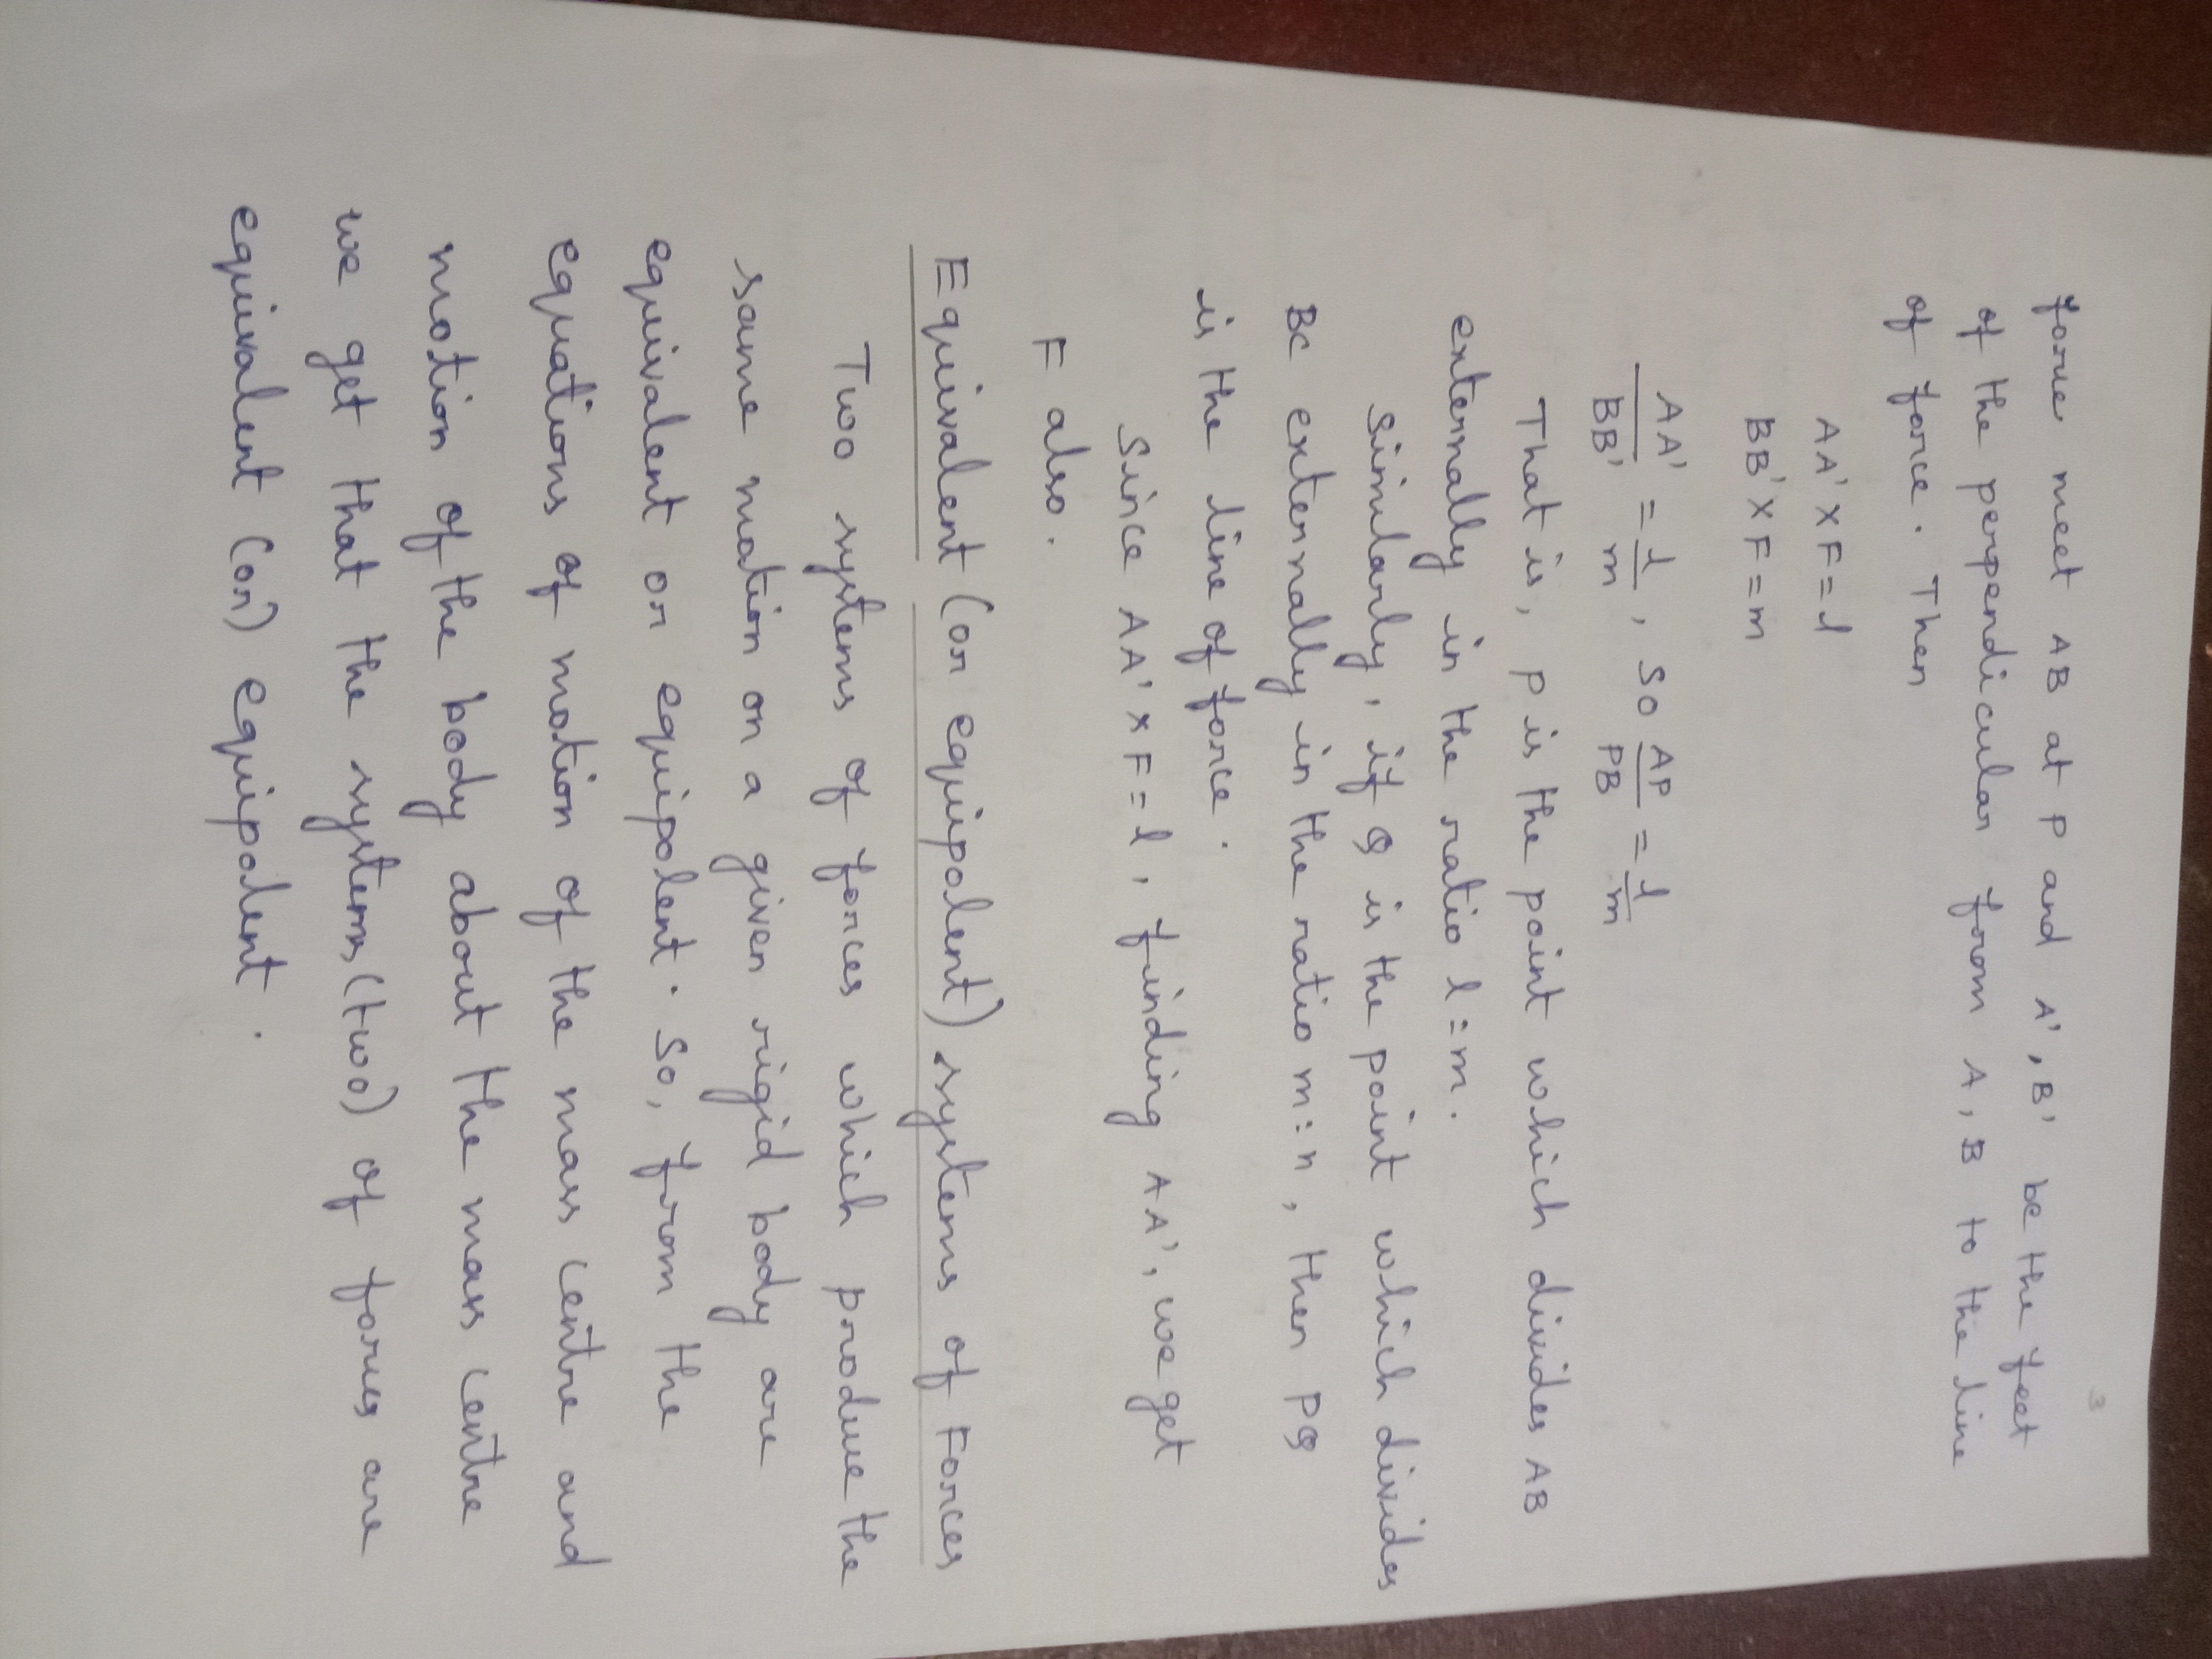 3
force meet AB at P and A', B' be the feet
of the perpendicular from A, B to the line
of force. Then
AA' x F = l
BB' x F = m
AA'/BB' = l/m, so AP/PB = l/m
That is, P is the point which divides AB
externally in the ratio l : m.
Similarly, if Q is the point which divides
BC externally in the ratio m : n, then PQ
is the line of force.
Since AA' x F = l, finding AA', we get
F also.
Equivalent (or equipolent) systems of Forces
Two systems of forces which produce the
same motion on a given rigid body are
equivalent or equipolent. So, from the
equations of motion of the mass centre and
motion of the body about the mass centre
we get that the systems (two) of forces are
equivalent (or) equipolent.